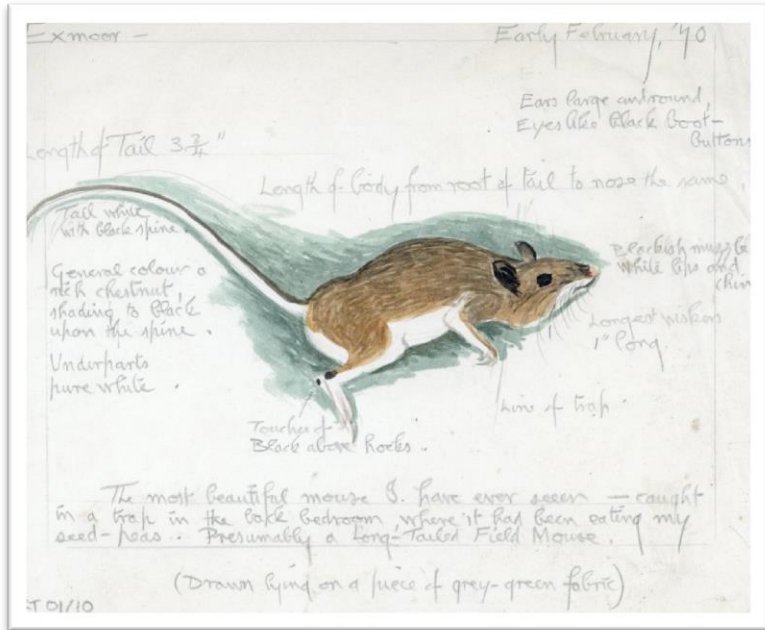 Exmoor –
Early February, '40
Ears large and round,
Eyes like black boot-
buttons
Length of Tail 3 3/4"
Length of body from root of tail to nose the same,
Tail white
with black spine.
Blackish muzzle
white lips and
chin
General colour a
rich chestnut,
shading to black
upon the spine.
Longest wiskers
1" long
Underparts
pure white.
Line of trap.
Touches of
Black above hocks.
The most beautiful mouse I have ever seen — caught
in a trap in the back bedroom, where it had been eating my
seed-peas. Presumably a Long-Tailed Field Mouse.
(Drawn lying on a piece of grey-green fabric)
T 01/10